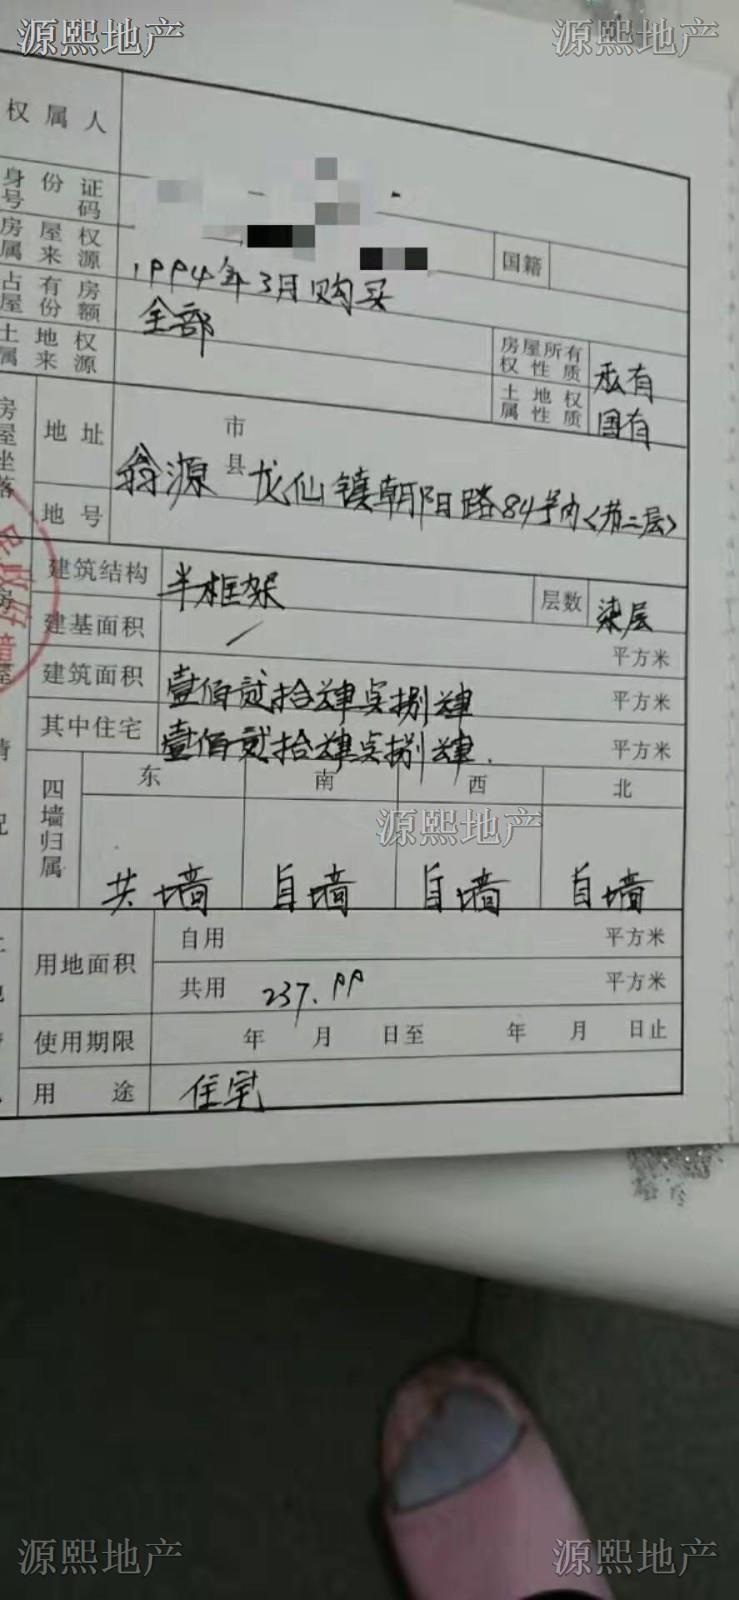 源熙地产 源熙地产
权属人
身份证号码
房屋权属来源 1994年3月购买 国籍
占有房屋份额 全部
土地权属来源 房屋所有权性质 私有
土地权属性质 国有
房屋坐落 地址 翁源 市县 龙仙镇朝阳路84号内(第二层)
地号
建筑结构 半框架 层数 柒层
建基面积 平方米
建筑面积 壹佰贰拾肆点捌肆 平方米
其中住宅 壹佰贰拾肆点捌肆. 平方米
四墙归属 东 南 西 北
源熙地产
共墙 自墙 自墙 自墙
用地面积 自用 平方米
共用 237.99 平方米
使用期限 年 月 日至 年 月 日止
用途 住宅
源熙地产 源熙地产